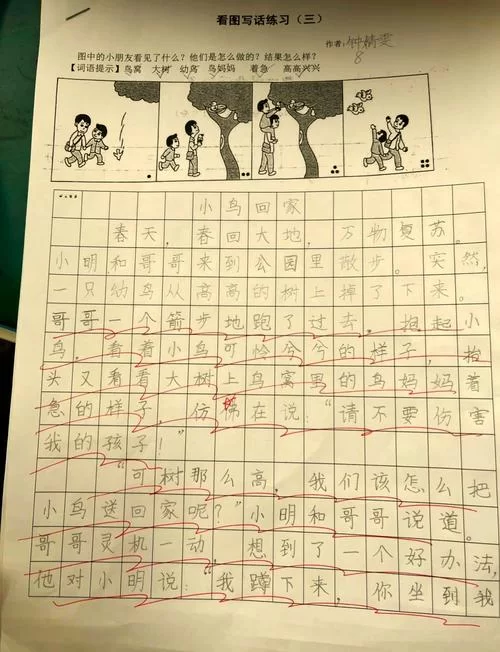 看图写话练习（三）
作者：钟婧雯
8
图中的小朋友看见了什么？他们是怎么做的？结果怎么样？
【词语提示】鸟窝 大树 幼鸟 鸟妈妈 着急 高高兴兴
小鸟回家
春天，春回大地，万物复苏。
小明和哥哥来到公园里散步。突然，
一只幼鸟从高高的树上掉了下来。
哥哥一个箭步地跑了过去，抱起小
鸟，看着小鸟可怜兮兮的样子，抬
头又看看大树上鸟窝里的鸟妈妈着
急的样子，仿佛在说：“请不要伤害
我的孩子！”
“可树那么高，我们该怎么把
小鸟送回家呢？”小明和哥哥说道。
哥哥灵机一动，想到了一个好办法，
他对小明说：“我蹲下来，你坐到我